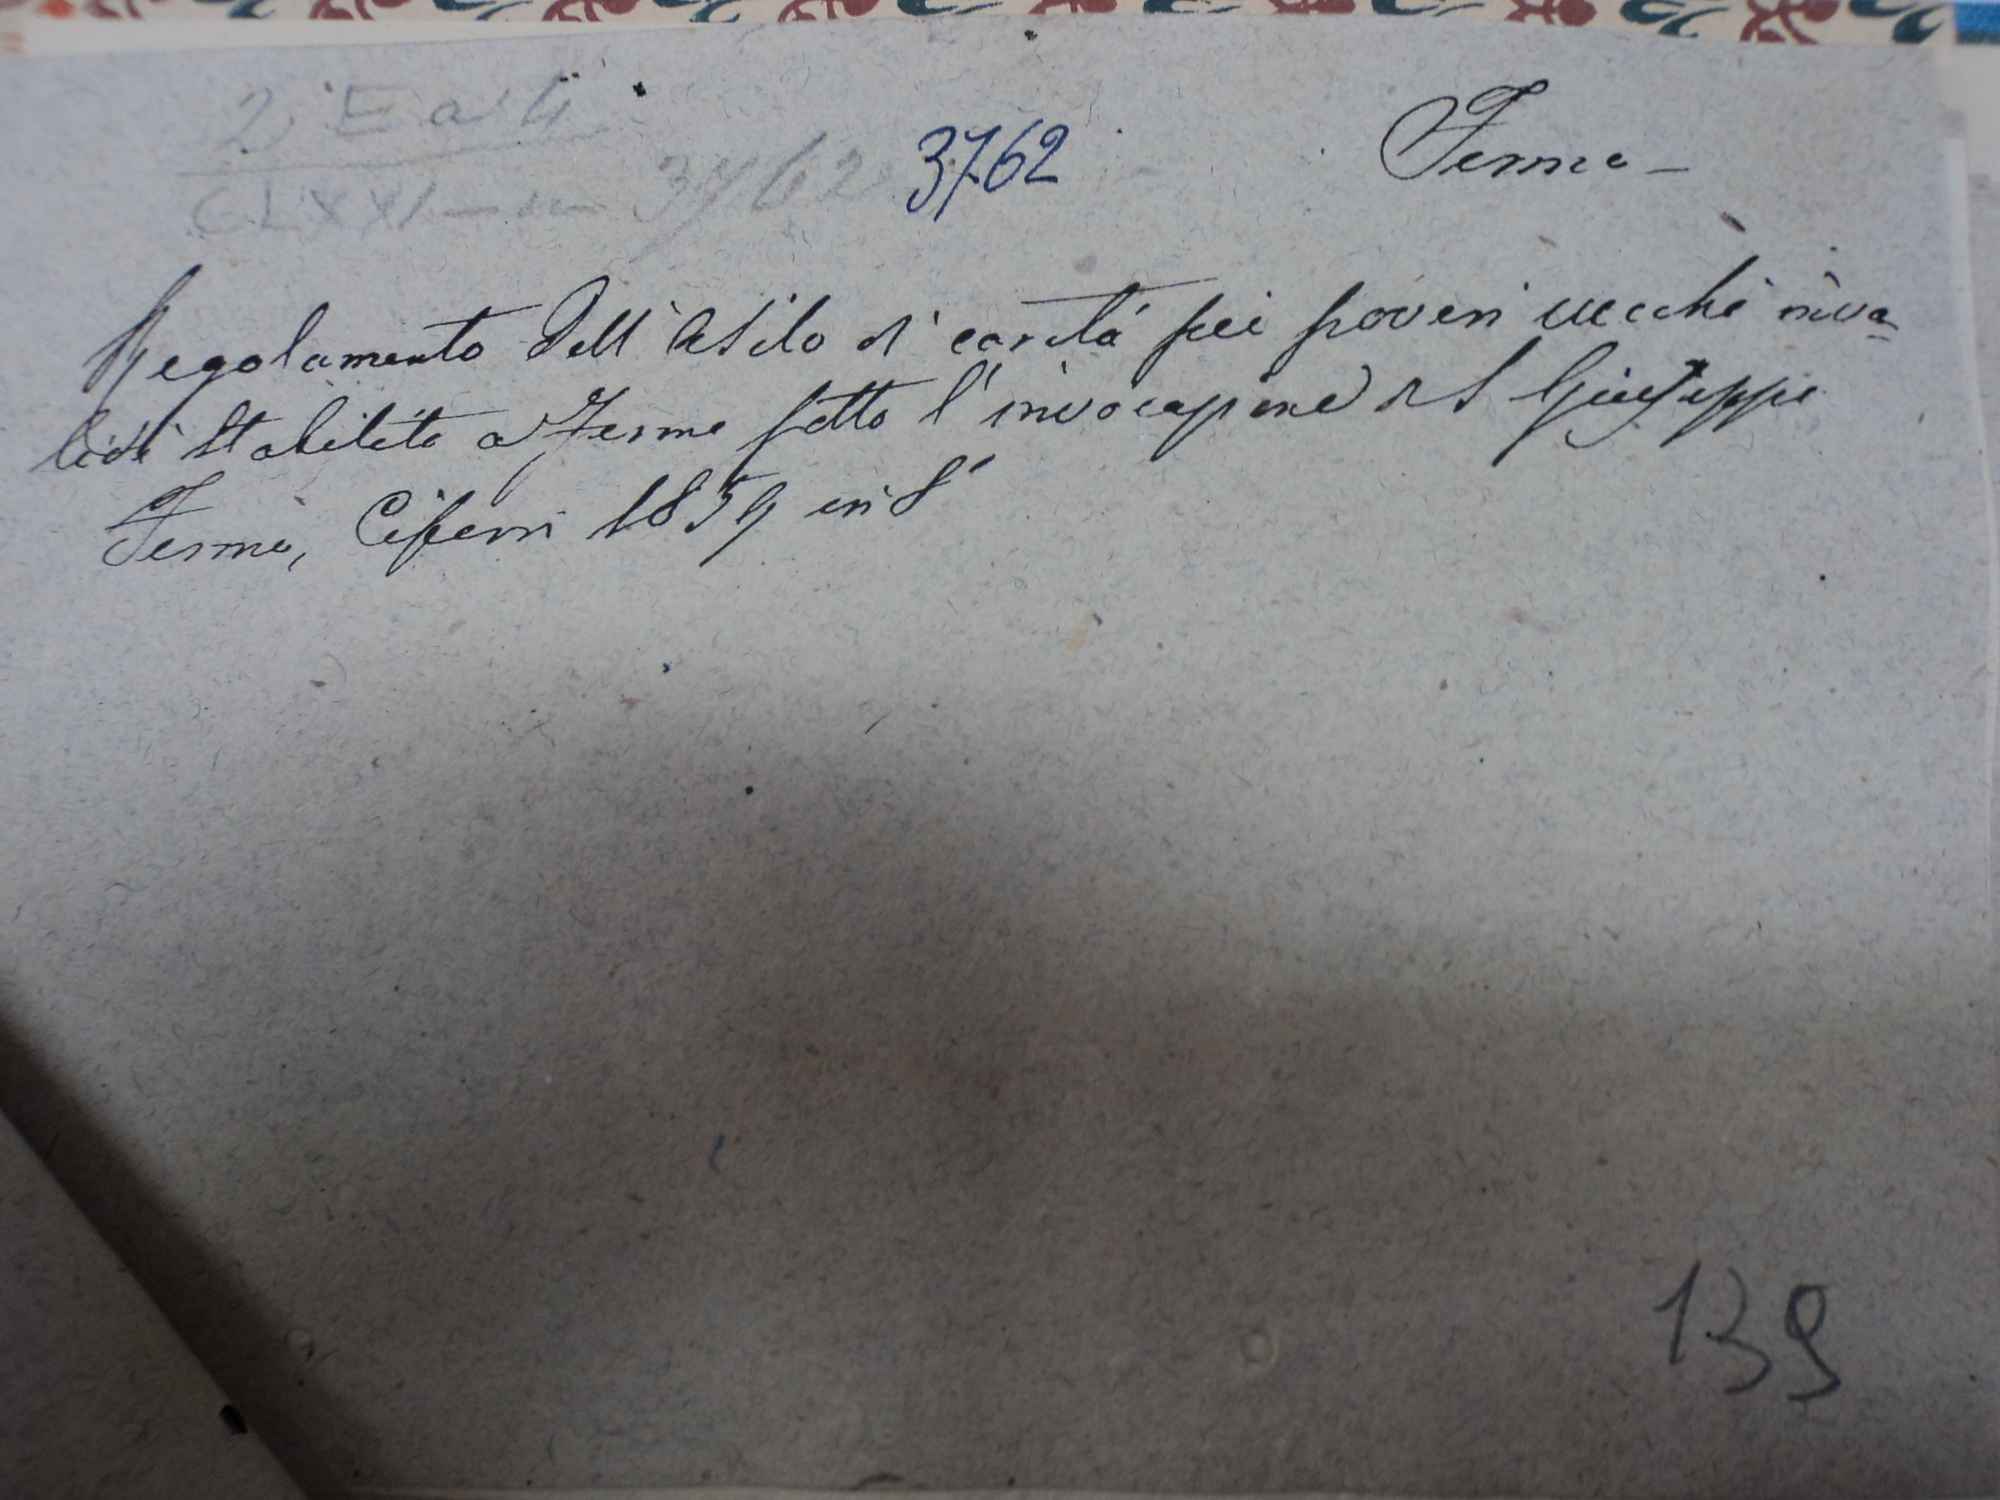 2 E a 4
3762
Fermo -
CLXXI - 3762
Regolamento dell'Asilo di carità pei poveri vecchi inva=
lidi stabilito a Fermo sotto l'invocazione di S Giuseppe
Fermo, Ciferri 1859 in 8°
139